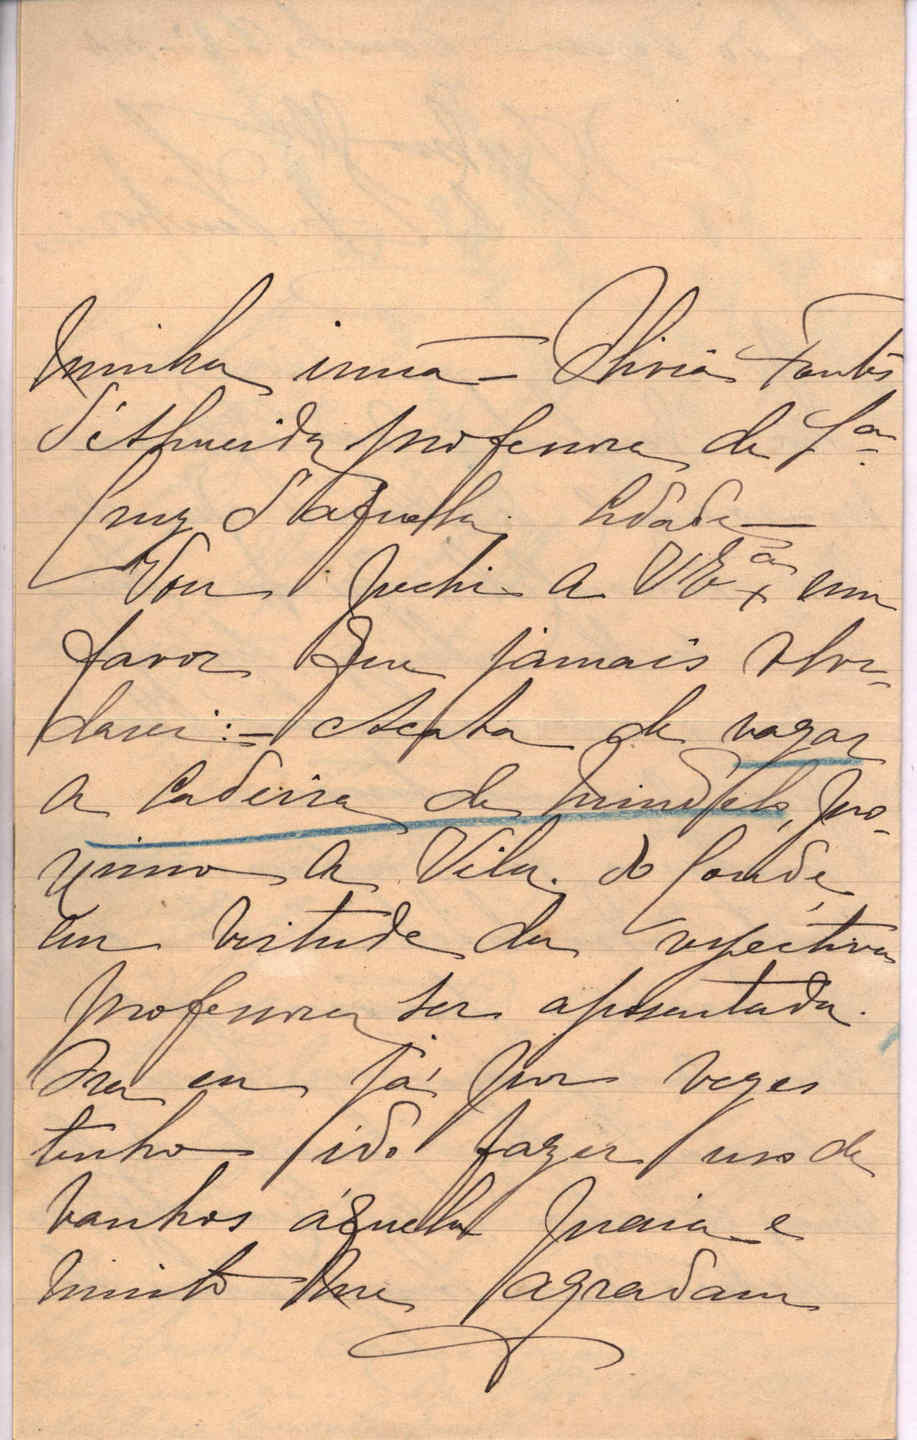 minha irmã – Olivia Fontes
d'Almeida, professora de S.ta
Cruz d'aquella Cidade –
Vou pedir a V Ex.ca um
favor que jamais olvi-
darei: – Acaba de vagar
a cadeira de Mindello, pro-
ximo a Vila do Conde,
em virtude da respectiva
professora ser aposentada.
Ora eu já por vezes
tenho ido fazer uso de
banhos áquella praia e
muito me agradam